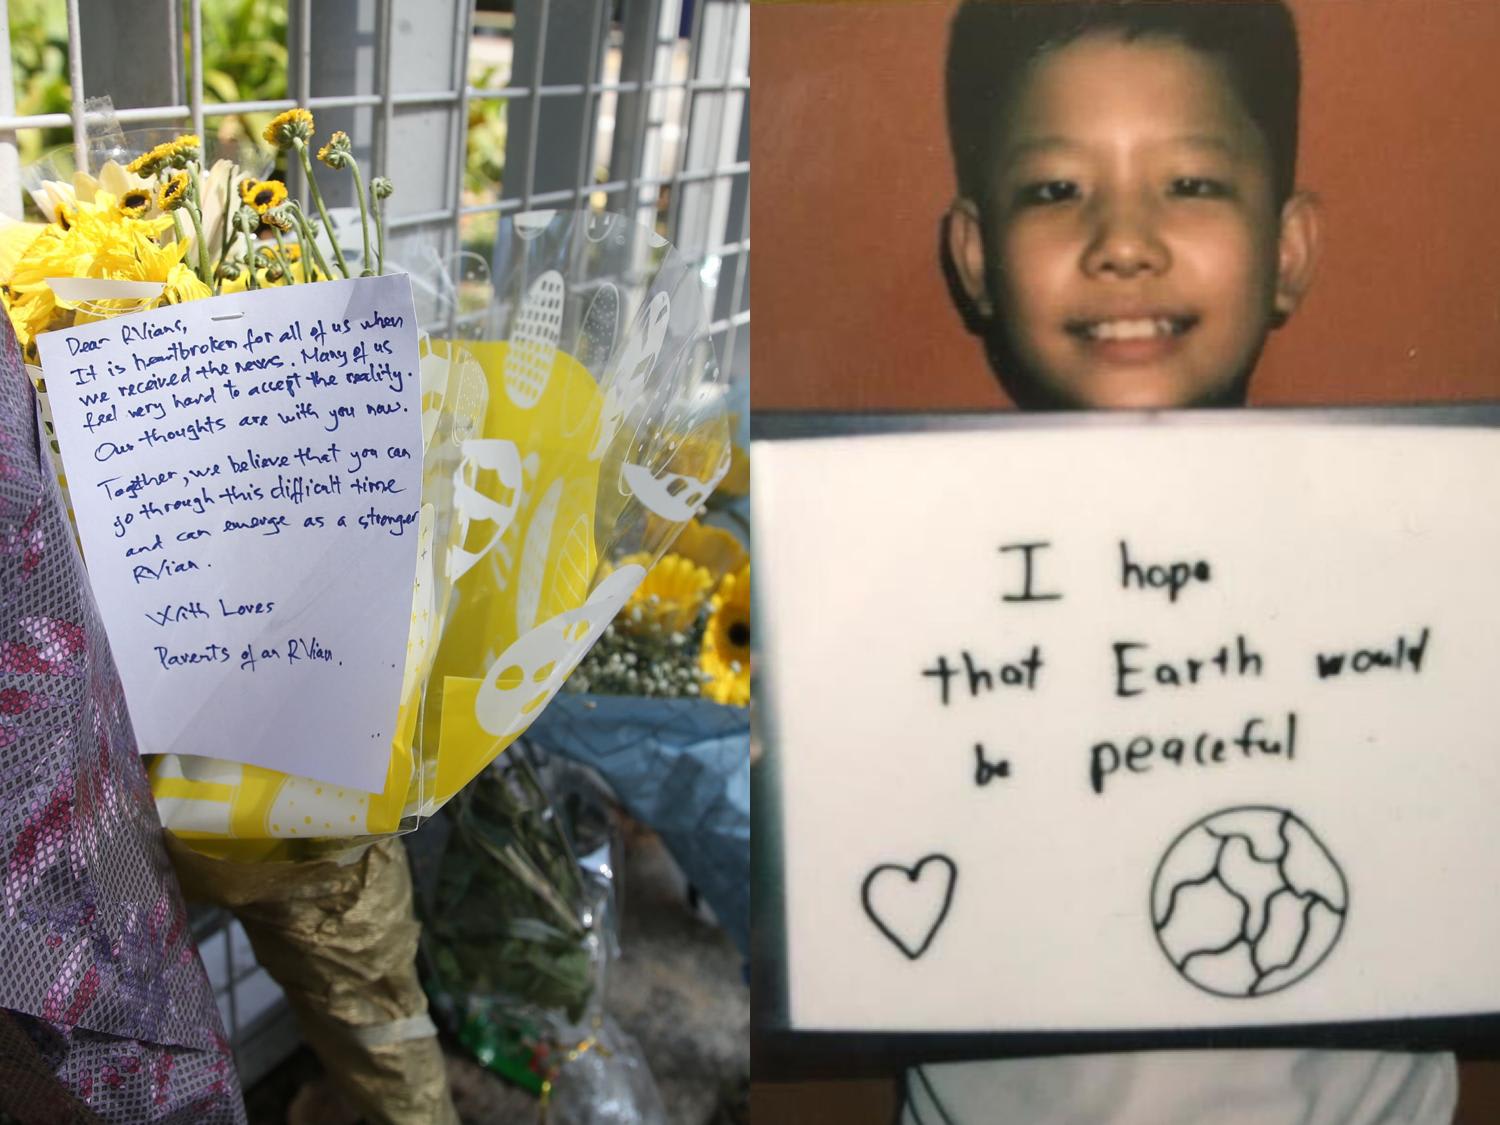 Dear RVians,
It is heartbroken for all of us when
we received the news. Many of us
feel very hard to accept the reality.
Our thoughts are with you now.
Together, we believe that you can
go through this difficult time
and can emerge as a stronger
RVian.
With Loves
Parents of an RVian.
I hope
that Earth would
be peaceful